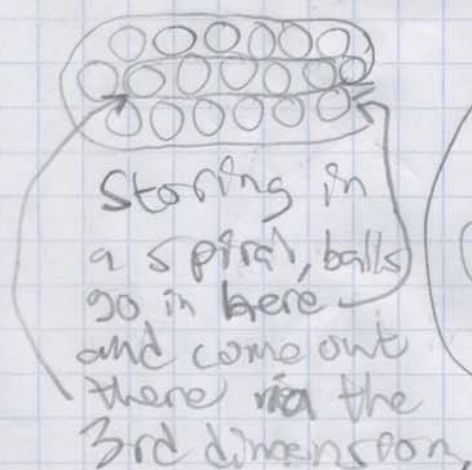 Storing in
a spiral, balls
go in here
and come out
there via the
3rd dimension,